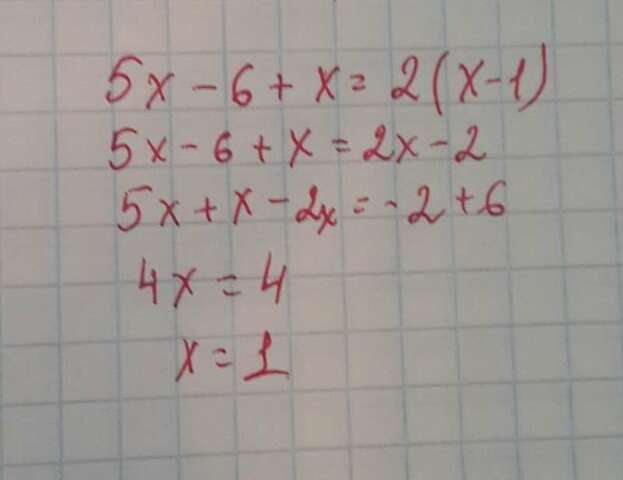 5x - 6 + x = 2(x-1)
5x - 6 + x = 2x - 2
5x + x - 2x = -2 + 6
4x = 4
x = 1